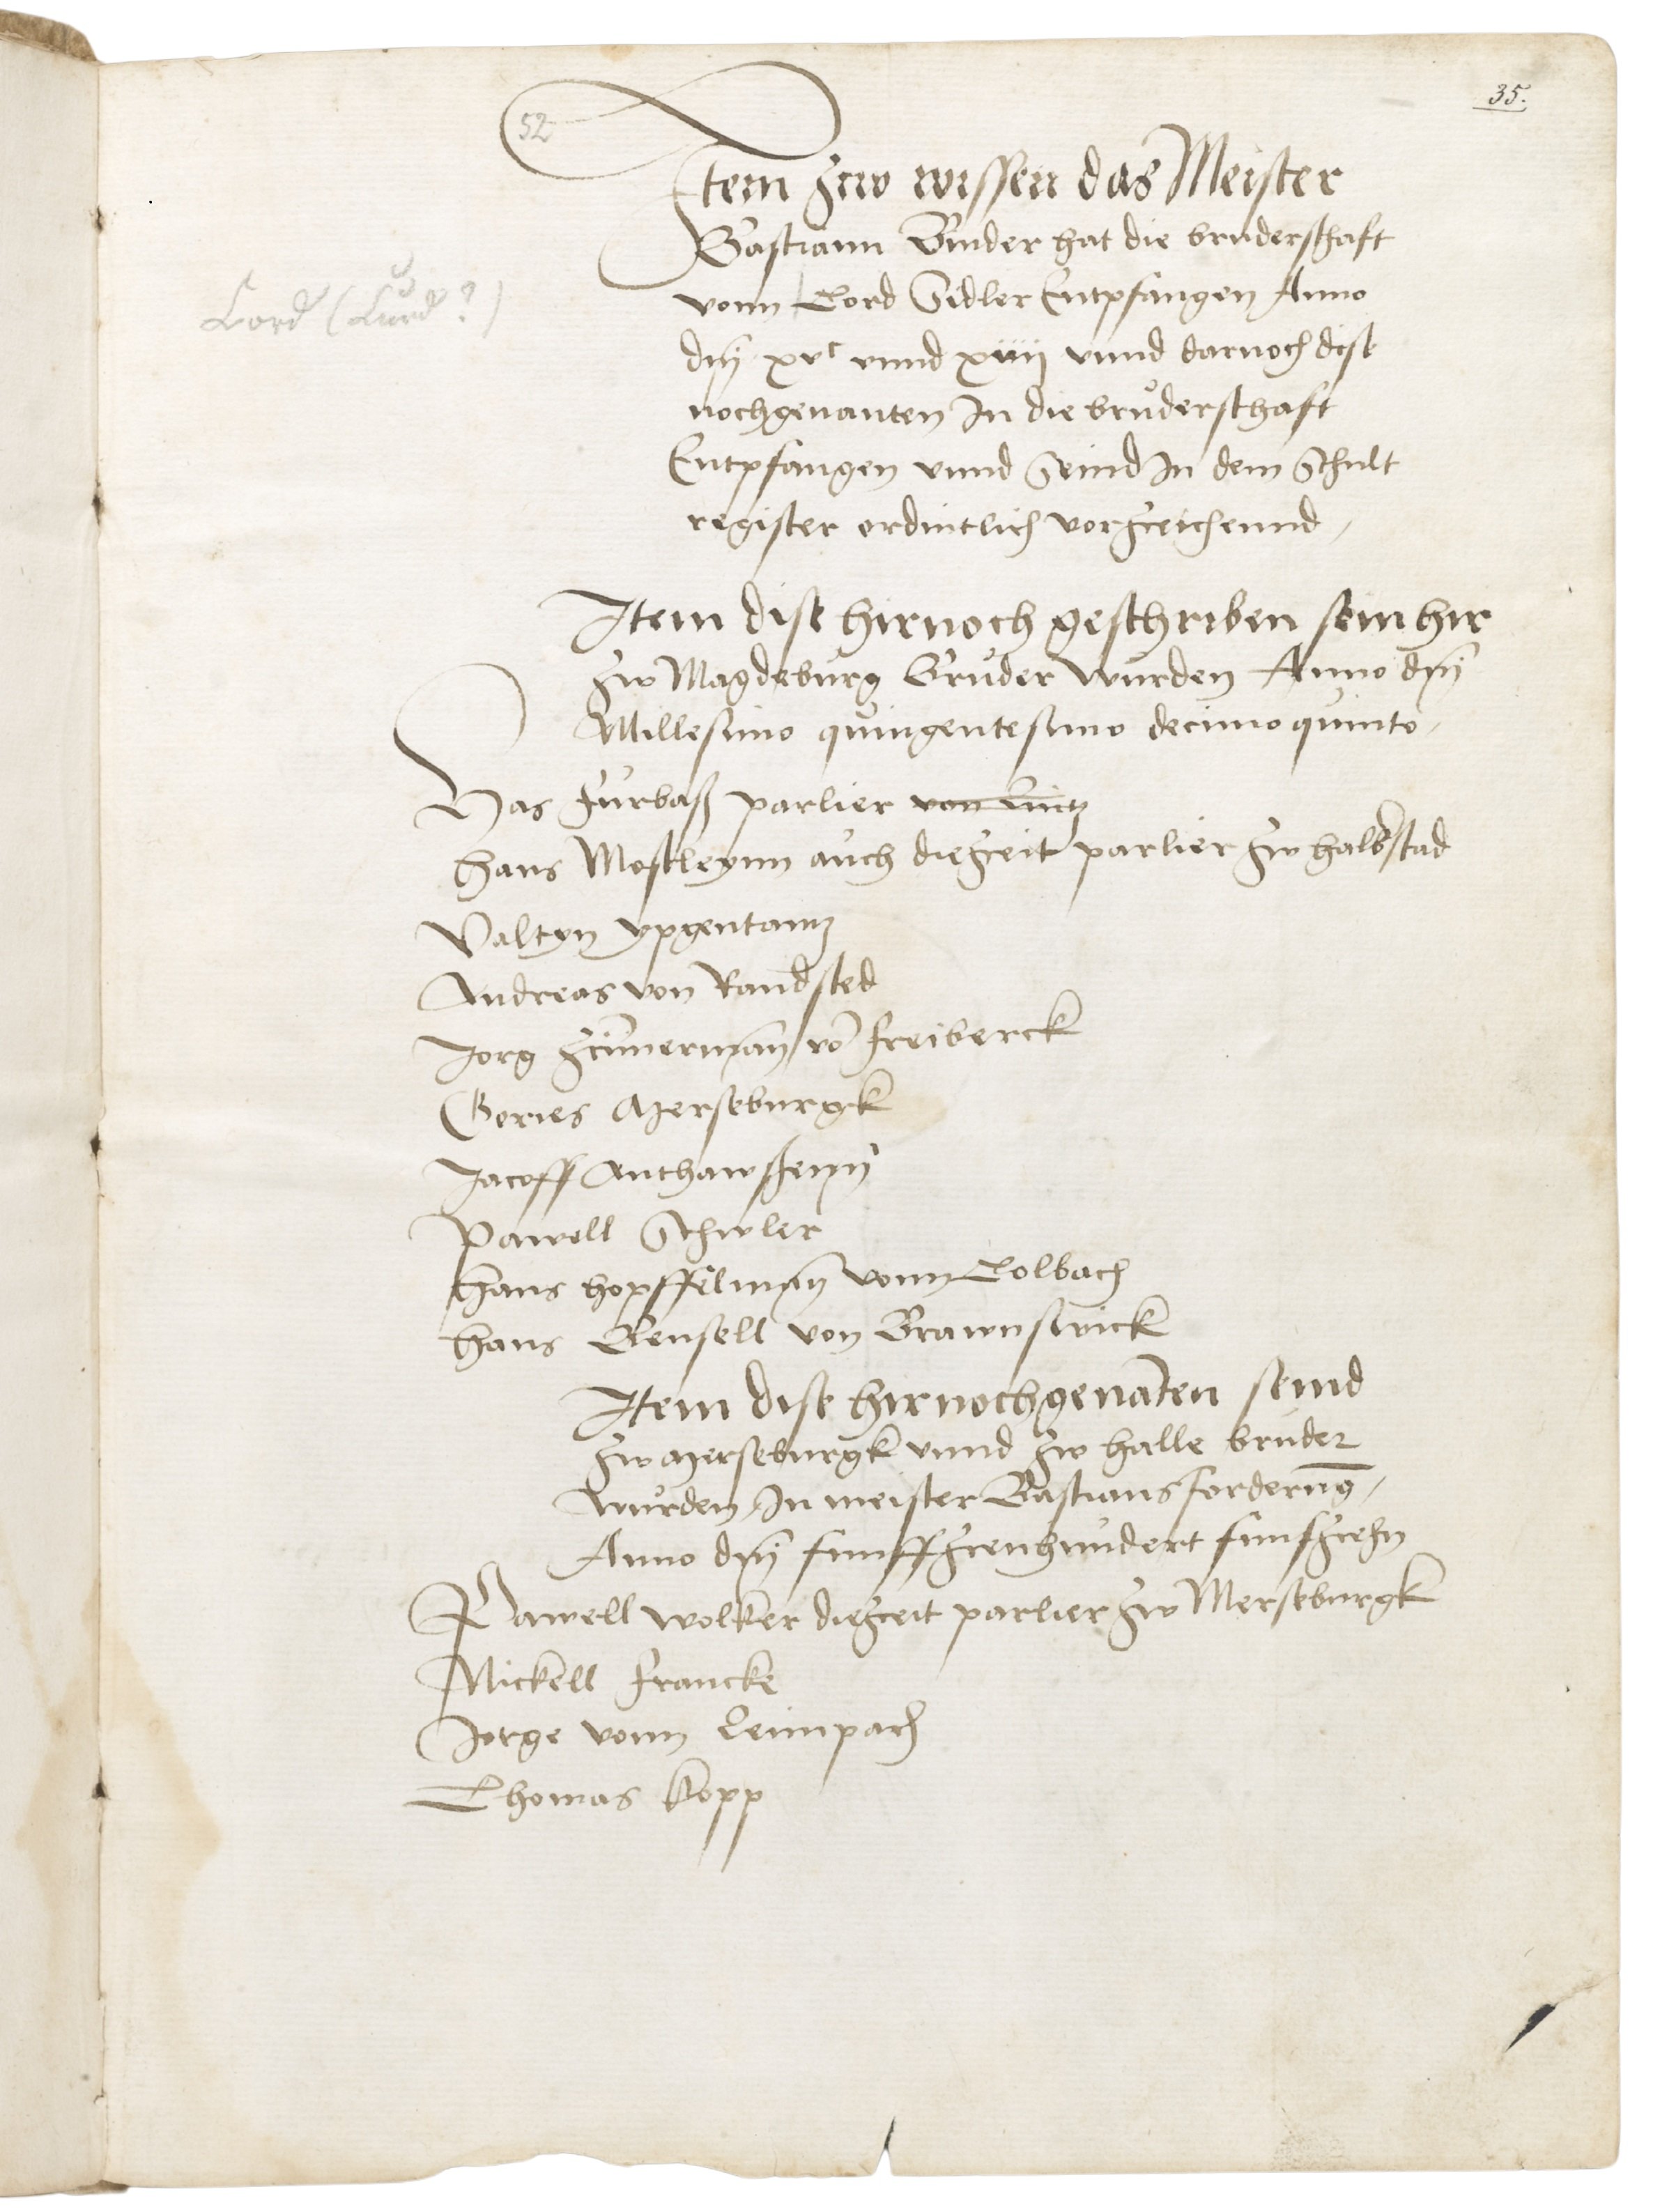 35.
52
Item zcw wissen das Meister
Bastiann Binder hat die bruderschaft
vonn Cord Sidler Entpfangen Anno
Cord (Curd?)
dnj xvc vnnd xiiij vnnd darnoch dise
nochgenanten In die brůderschaft
Entpfangen vnnd Seind In dem Schult
register ordintlich vorzceichennd,
Item dise hirnoch geschriben sein hir
zw Magdeburg Bruder wurden Anno dnj
Millesimo quingentesimo decimo quinto,
Has Furbaß parlier von Lintz
Hans Mostleynn auch die zceit parlier zw halbstad
Valtyn ypgentantz
Andreas von Randsted
Jorg Zcimerman vo Freiberck
Gories Merseburgk
Jacoff Anthawßenn
Pawell Schuler
Hans Hopffelman vonn Colbach
Hans Bensell von Brawnswick
Item dise hirnochgenaten seind
zw Merseburgk vnnd zw Halle bruder
wurden In meister Bastians forderug,
Anno dnj funffzcenhundert funfzcehn
Pawell wolker die zceit parlier zw Merseburgk
Nickell Francke
Jorge vonn Leimpach
Thomas Kopp